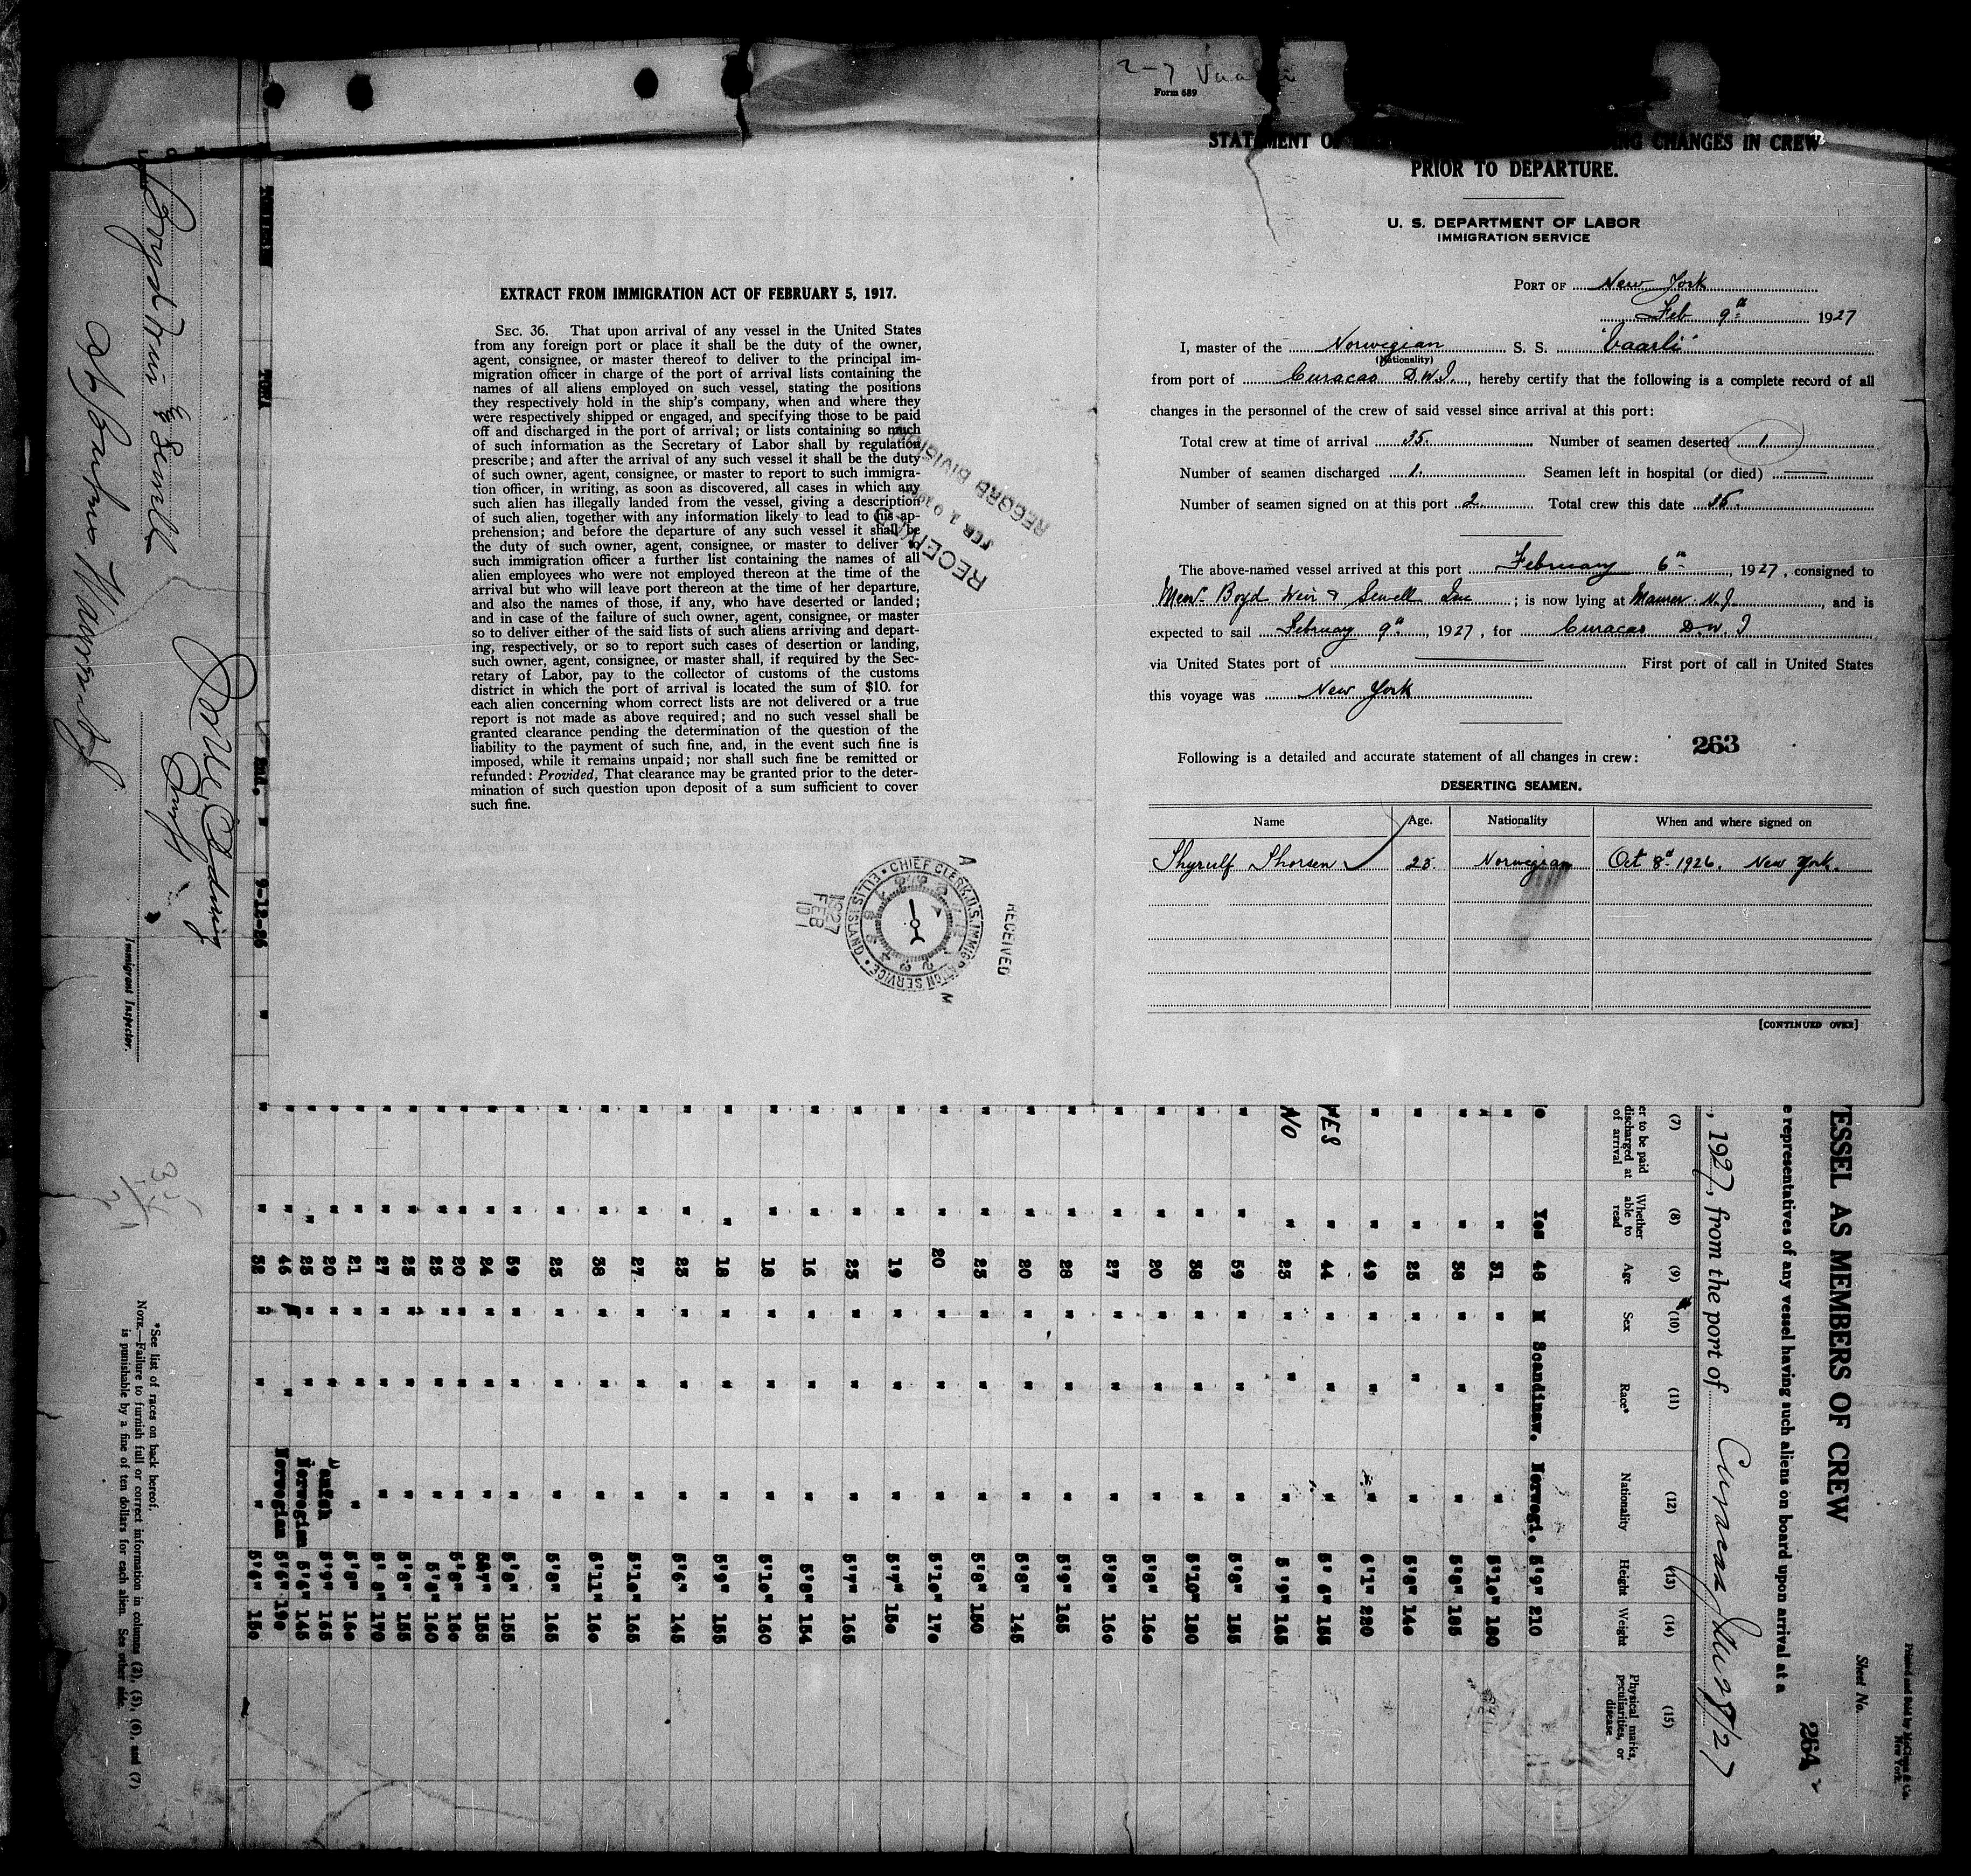 Form 689
CHANGES IN CREW
PRIOR TO DEPARTURE.
U. S. DEPARTMENT OF LABOR
IMMIGRATION SERVICE
PORT OF New York
Feb 9th 1927
I, master of the Norwegian S. S. "Vaarli"
(Nationality)
from port of Curacao D.W.I., hereby certify that the following is a complete record of all
changes in the personnel of the crew of said vessel since arrival at this port:
Total crew at time of arrival 35. Number of seamen deserted 1
Number of seamen discharged 1. Seamen left in hospital (or died)
Number of seamen signed on at this port 2. Total crew this date 35.
The above-named vessel arrived at this port February 6th, 1927, consigned to
Messrs Boyd Weir & Sewell Inc; is now lying at Maurer N.J., and is
expected to sail February 9th, 1927, for Curacao D.W.I
via United States port of First port of call in United States
this voyage was New York
263
Following is a detailed and accurate statement of all changes in crew:
DESERTING SEAMEN.
Name Age. Nationality When and where signed on
Thorsen 25. Norwegian Oct 8th 1926. New York.
[CONTINUED OVER]
EXTRACT FROM IMMIGRATION ACT OF FEBRUARY 5, 1917.
SEC. 36. That upon arrival of any vessel in the United States
from any foreign port or place it shall be the duty of the owner,
agent, consignee, or master thereof to deliver to the principal im-
migration officer in charge of the port of arrival lists containing the
names of all aliens employed on such vessel, stating the positions
they respectively hold in the ship's company, when and where they
were respectively shipped or engaged, and specifying those to be paid
off and discharged in the port of arrival; or lists containing so much
of such information as the Secretary of Labor shall by regulation
prescribe; and after the arrival of any such vessel it shall be the duty
of such owner, agent, consignee, or master to report to such immigra-
tion officer, in writing, as soon as discovered, all cases in which any
such alien has illegally landed from the vessel, giving a description
of such alien, together with any information likely to lead to his ap-
prehension; and before the departure of any such vessel it shall be
the duty of such owner, agent, consignee, or master to deliver to
such immigration officer a further list containing the names of all
alien employees who were not employed thereon at the time of the
arrival but who will leave port thereon at the time of her departure,
and also the names of those, if any, who have deserted or landed;
and in case of the failure of such owner, agent, consignee, or master
so to deliver either of the said lists of such aliens arriving and depart-
ing, respectively, or so to report such cases of desertion or landing,
such owner, agent, consignee, or master shall, if required by the Sec-
retary of Labor, pay to the collector of customs of the customs
district in which the port of arrival is located the sum of $10. for
each alien concerning whom correct lists are not delivered or a true
report is not made as above required; and no such vessel shall be
granted clearance pending the determination of the question of the
liability to the payment of such fine, and, in the event such fine is
imposed, while it remains unpaid; nor shall such fine be remitted or
refunded: Provided, That clearance may be granted prior to the deter-
mination of such question upon deposit of a sum sufficient to cover
such fine.
RECEIVED
RECORD DIVISION
RECEIVED
CHIEF CLERK, U.S. IMMIGRATION SERVICE • ELLIS ISLAND
1927 FEB 10
Printed and Sold by
New York
Sheet No.
264
ESSEL AS MEMBERS OF CREW
e representatives of any vessel having such aliens on board upon arrival at a
, 1927, from the port of Curacao
(7) (8) (9) (10) (11) (12) (13) (14) (15)
er to be paid discharged at of arrival
Whether able to read
Age
Sex
Race*
Nationality
Height
Weight
Physical marks, peculiarities, or disease
Yes 48 M Scandinav. Norwegi. 5'9" 210
" " 31 " " " 5'10" 180
" " 38 " " " 5'8" 185
" " 25 " " " 5'8" 140
" " 49 " " " 6'1" 220
YES " 44 " " " 5' 6" 155
NO " 23 " " " 5 '9" 165
" " 59 " " " 5'8" 155
" " 38 " " " 5'10" 180
" " 20 " " " 5'8" 160
" " 27 " " " 5'8" 160
" " 28 " " " 5'9" 165
" " 20 " " " 5'8" 145
" " 23 " " " 5'8" 150
" " 20 " " " 5'10" 170
" " 19 " " " 5'7" 150
" " 23 " " " 5'7" 165
" " 16 " " " 5'8" 154
" " 18 " " " 5'10" 160
" " 18 " " " 5'9" 155
" " 23 " " " 5'6" 145
" " 27 " " " 5'10" 165
" " 38 " " " 5'11" 160
" " 23 " " " 5'8" 165
" " 59 " " " 5'8" 155
" " 24 " " " 5'7" 155
" " 20 " " " 5'8" 160
" " 23 " " " 5'8" 160
" " 25 " " " 5'8" 155
" " 27 " " " 5' 8" 170
" " 21 " " " 5'8" 160
" " 20 " " Danish 5'9" 165
" " 23 " " Norwegian 5'6" 145
" " 46 " " Norwegian 5'6" 190
" " 32 " " " 5'6" 150
9-12-26
Immigrant Inspector.
*See list of races on back hereof.
NOTE.—Failure to furnish full or correct information in columns (2), (5), (6), and (7)
is punishable by a fine of ten dollars for each alien. See other side.